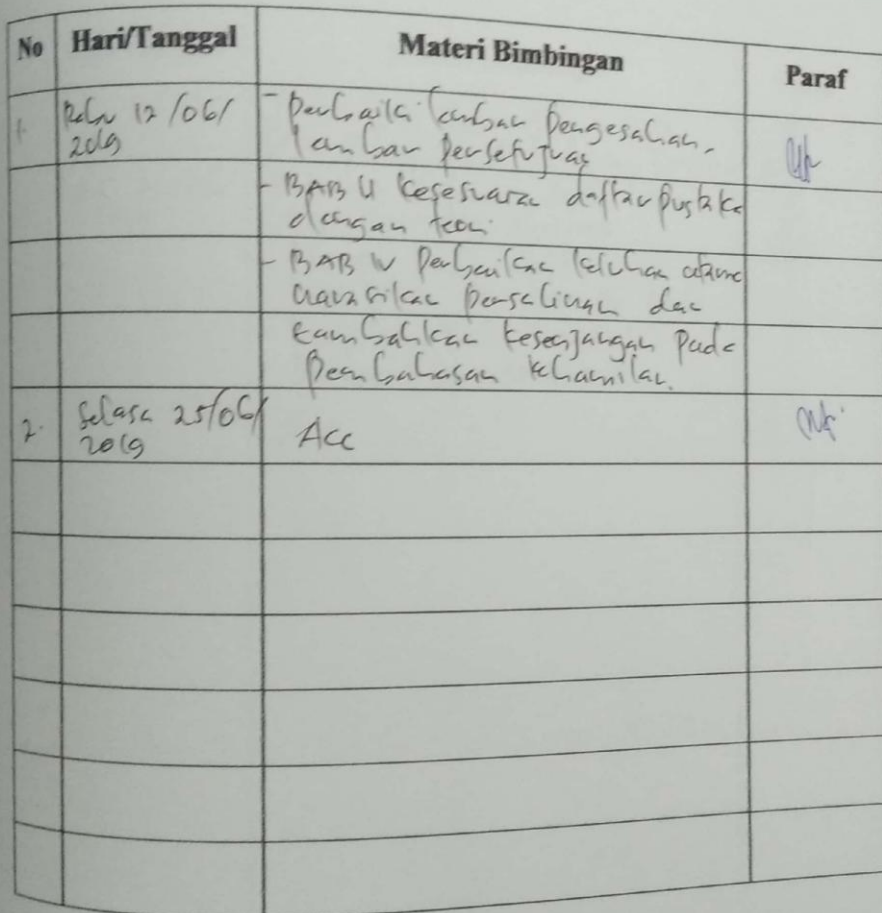 No Hari/Tanggal Materi Bimbingan Paraf
1. Rabu 12/06/ - Perbaiki lembar Pengesahan,
2019 lembar Persetujuan
- BAB II Kesesuaian daftar Pustaka
dengan teori
- BAB IV Perbaikan keluhan utama
narasikan persalinan dan
tambahkan kesenjangan Pada
Pembahasan kehamilan.
2. Selasa 25/06/ Acc
2019